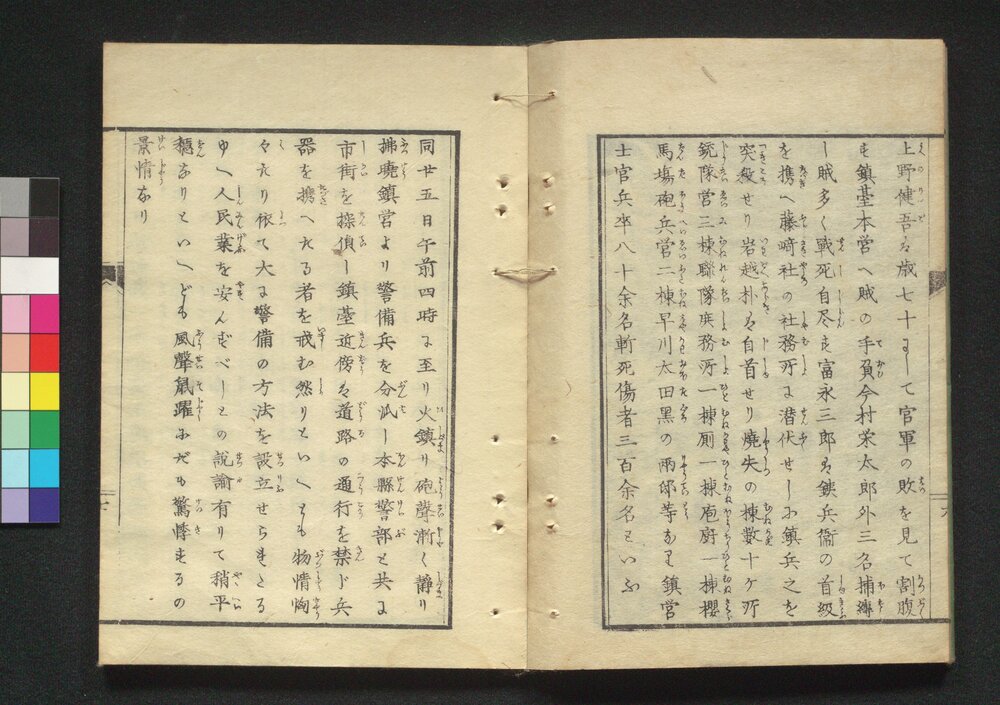 上野健吾ハ歳七十にして官軍の敗を見て割腹
す鎮臺本営へ賊の手負今村栄太郎外三名捕縛
し賊多く戦死自尽す富永三郎ハ鉄兵衛の首級
を携へ藤﨑社の社務所に潜伏せしが鎮兵之を
突殺せり岩越朴ハ自首せり焼失の棟数十ヶ所
銃隊営三棟聯隊庶務所一棟厠一棟庖厨一棟櫻
馬塲砲兵営二棟早川太田黒の両邸等なり鎮営
士官兵卒八十余名斬死傷者三百余名といふ
同廿五日午前四時に至り火鎮り砲聲漸く静り
拂曉鎮営より警備兵を分派し本縣警部と共に
市街を探偵し鎮臺近傍ハ道路の通行を禁じ兵
器を携へたる者を戒む然りといへども物情恟
々たり依て大に警備の方法を設立せられたる
ゆへ人民業を安んずべしとの説諭有りて稍平
穏なりといへども風聲鼠躍にだも驚悸するの
景情なり